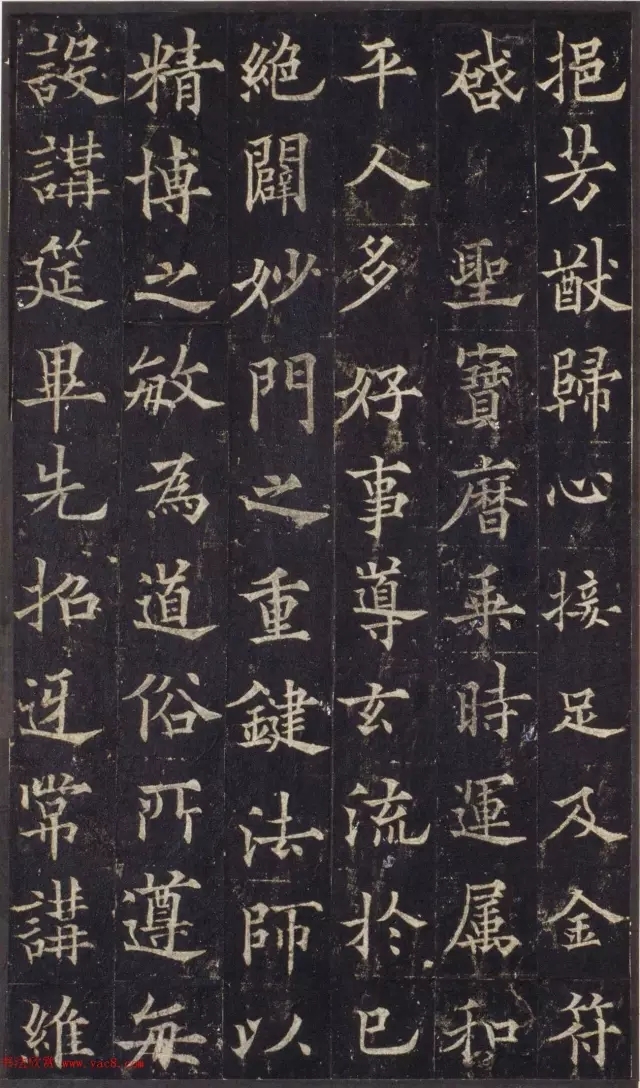 挹芳猷歸心接足及金符
啓 聖寶曆乘時運属和
平人多好事導玄流於已
絶闢妙門之重鍵法師以
精博之敏為道俗所遵每
設講筵畢先招迓常講維
www.vac8.com